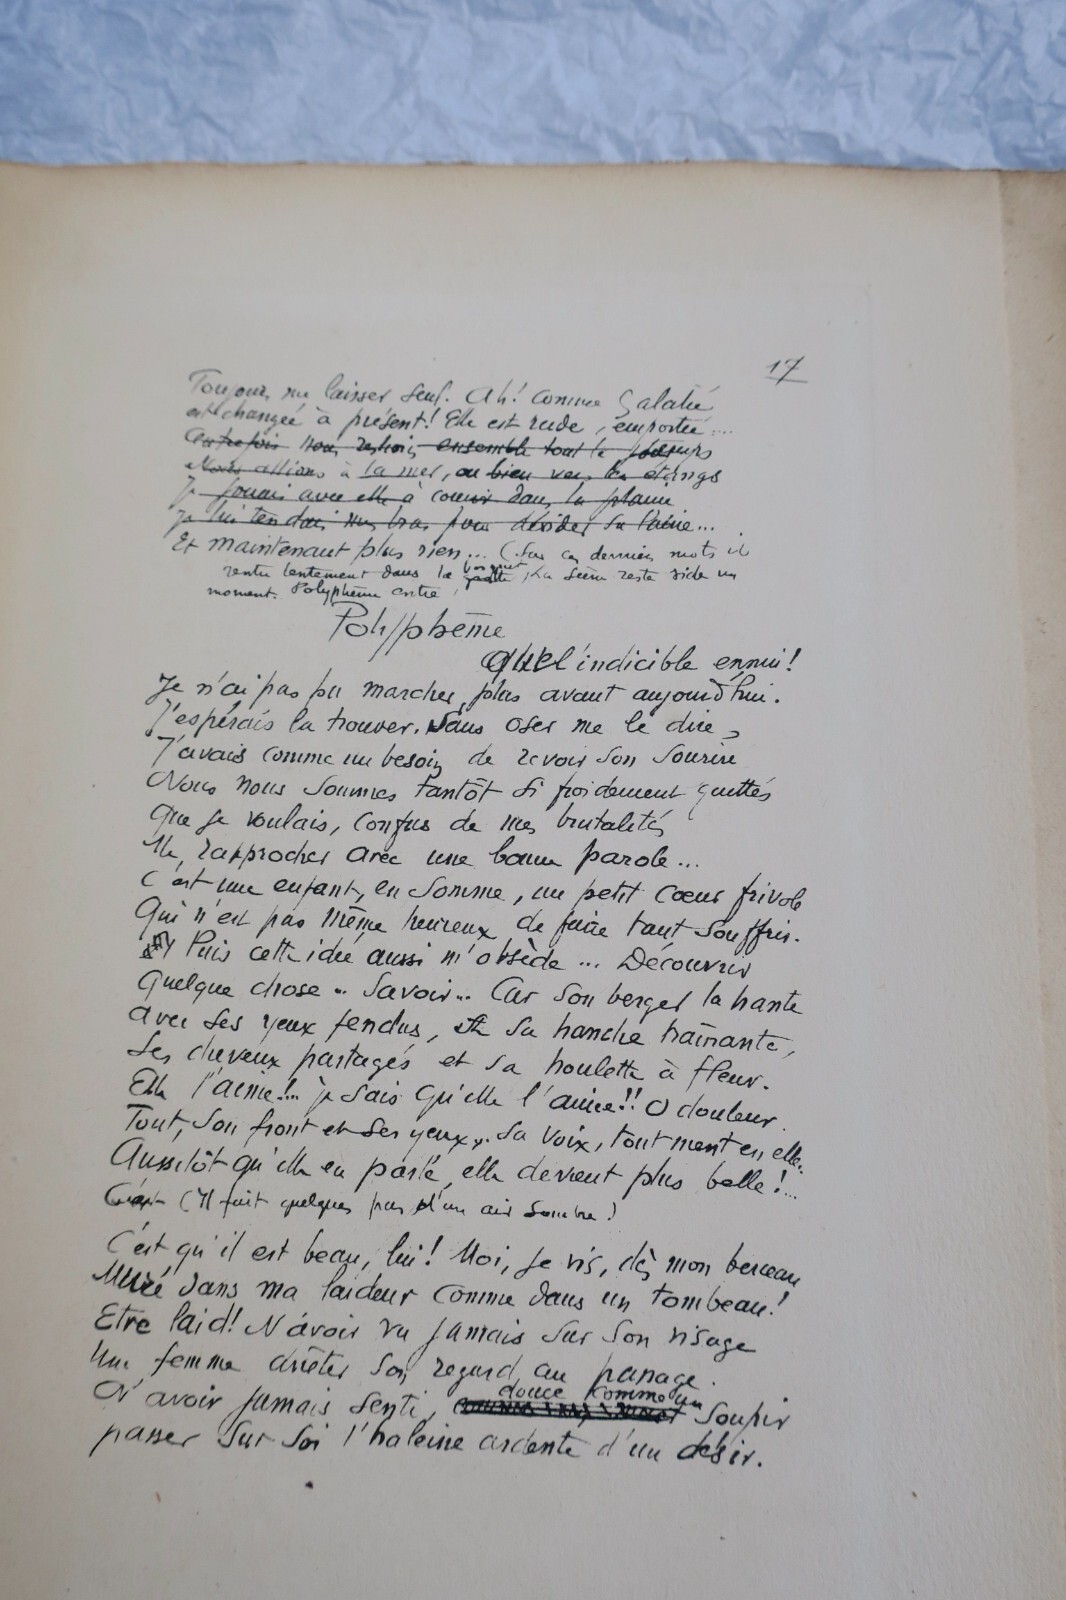 17
Toujours me laisser seul. Ah! comme Galatée
est changée à présent! Elle est rude, emportée....
Autrefois nous restions ensemble tout le temps
Nous allions à la mer, ou bien vers les étangs
Je jouais avec elle à courir dans la plaine
Je lui tendais mes bras pour dévider sa laine...
Et maintenant plus rien... (Sur ces derniers mots il
rentre lentement dans le bosquet, la scène reste vide un
moment. Polyphème entre,
Polyphème
Quel indicible ennui!
Je n'ai pas pu marcher plus avant aujourd'hui.
J'espérais la trouver. Sans oser me le dire,
J'avais comme un besoin de revoir son sourire
Nous nous sommes tantôt si froidement quittés
Que je voulais, confus de mes brutalités
Me rapprocher avec une bonne parole...
C'est une enfant, en somme, un petit cœur frivole
Qui n'est pas même heureux de faire tant souffrir.
Puis cette idée aussi m'obsède... Découvrir
Quelque chose... Savoir... Car son berger la hante
avec ses yeux fendus, sa hanche traînante,
Ses cheveux partagés et sa houlette à fleur.
Elle l'aime!... je sais qu'elle l'aime!! O douleur
Tout, son front et ses yeux,.. sa voix, tout ment en elle.
Aussitôt qu'elle en parle, elle devient plus belle!...
C'est (Il fait quelques pas d'un air sombre!
C'est qu'il est beau, lui! Moi, je vis, dès mon berceau
Muré dans ma laideur comme dans un tombeau!
Etre laid! N'avoir vu jamais sur son visage
Une femme arrêter son regard au passage.
N'avoir jamais senti, douce comme un soupir
passer sur soi l'haleine ardente d'un désir.